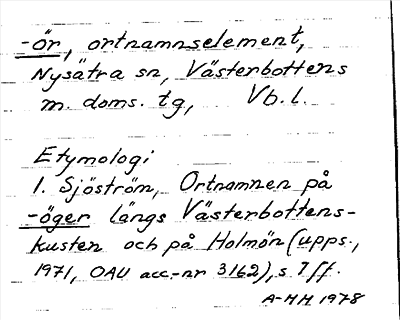 -ör, ortnamnselement,
Nysätra sn, Västerbottens
m. doms. tg, Vb.l.
Etymologi
1. Sjöström, Ortnamnen på
-öger längs Västerbottens-
kusten och på Holmön (upps.,
1971, OAU acc.-nr 3162), s. 7 ff.
A-MH 1978